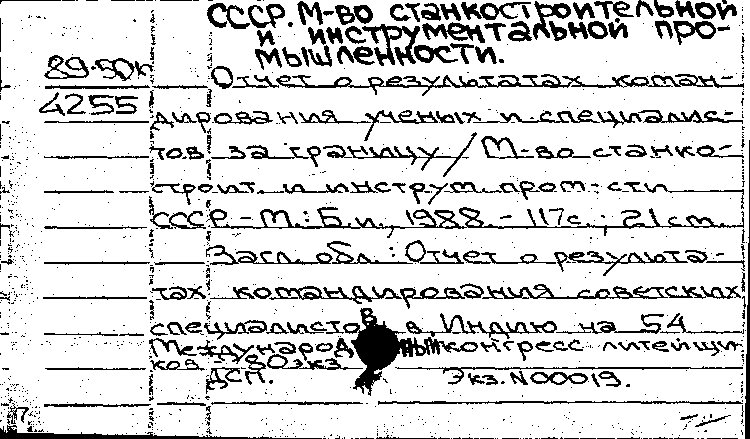 СССР. М-во станкостроительной
и инструментальной про-
мышленности.
89-50к
4255
Отчет о результатах коман-
дирования ученых и специалис-
тов за границу / М-во станко-
строит. и инструм. пром-сти
СССР. - М.: Б.и., 1988. - 117с.; 21см.
Загл. обл.: Отчет о результа-
тах командирования советских
специалистов в Индию на 54
Международный конгресс литейщи
ков 80экз
ДСП. Экз. N00019.
7